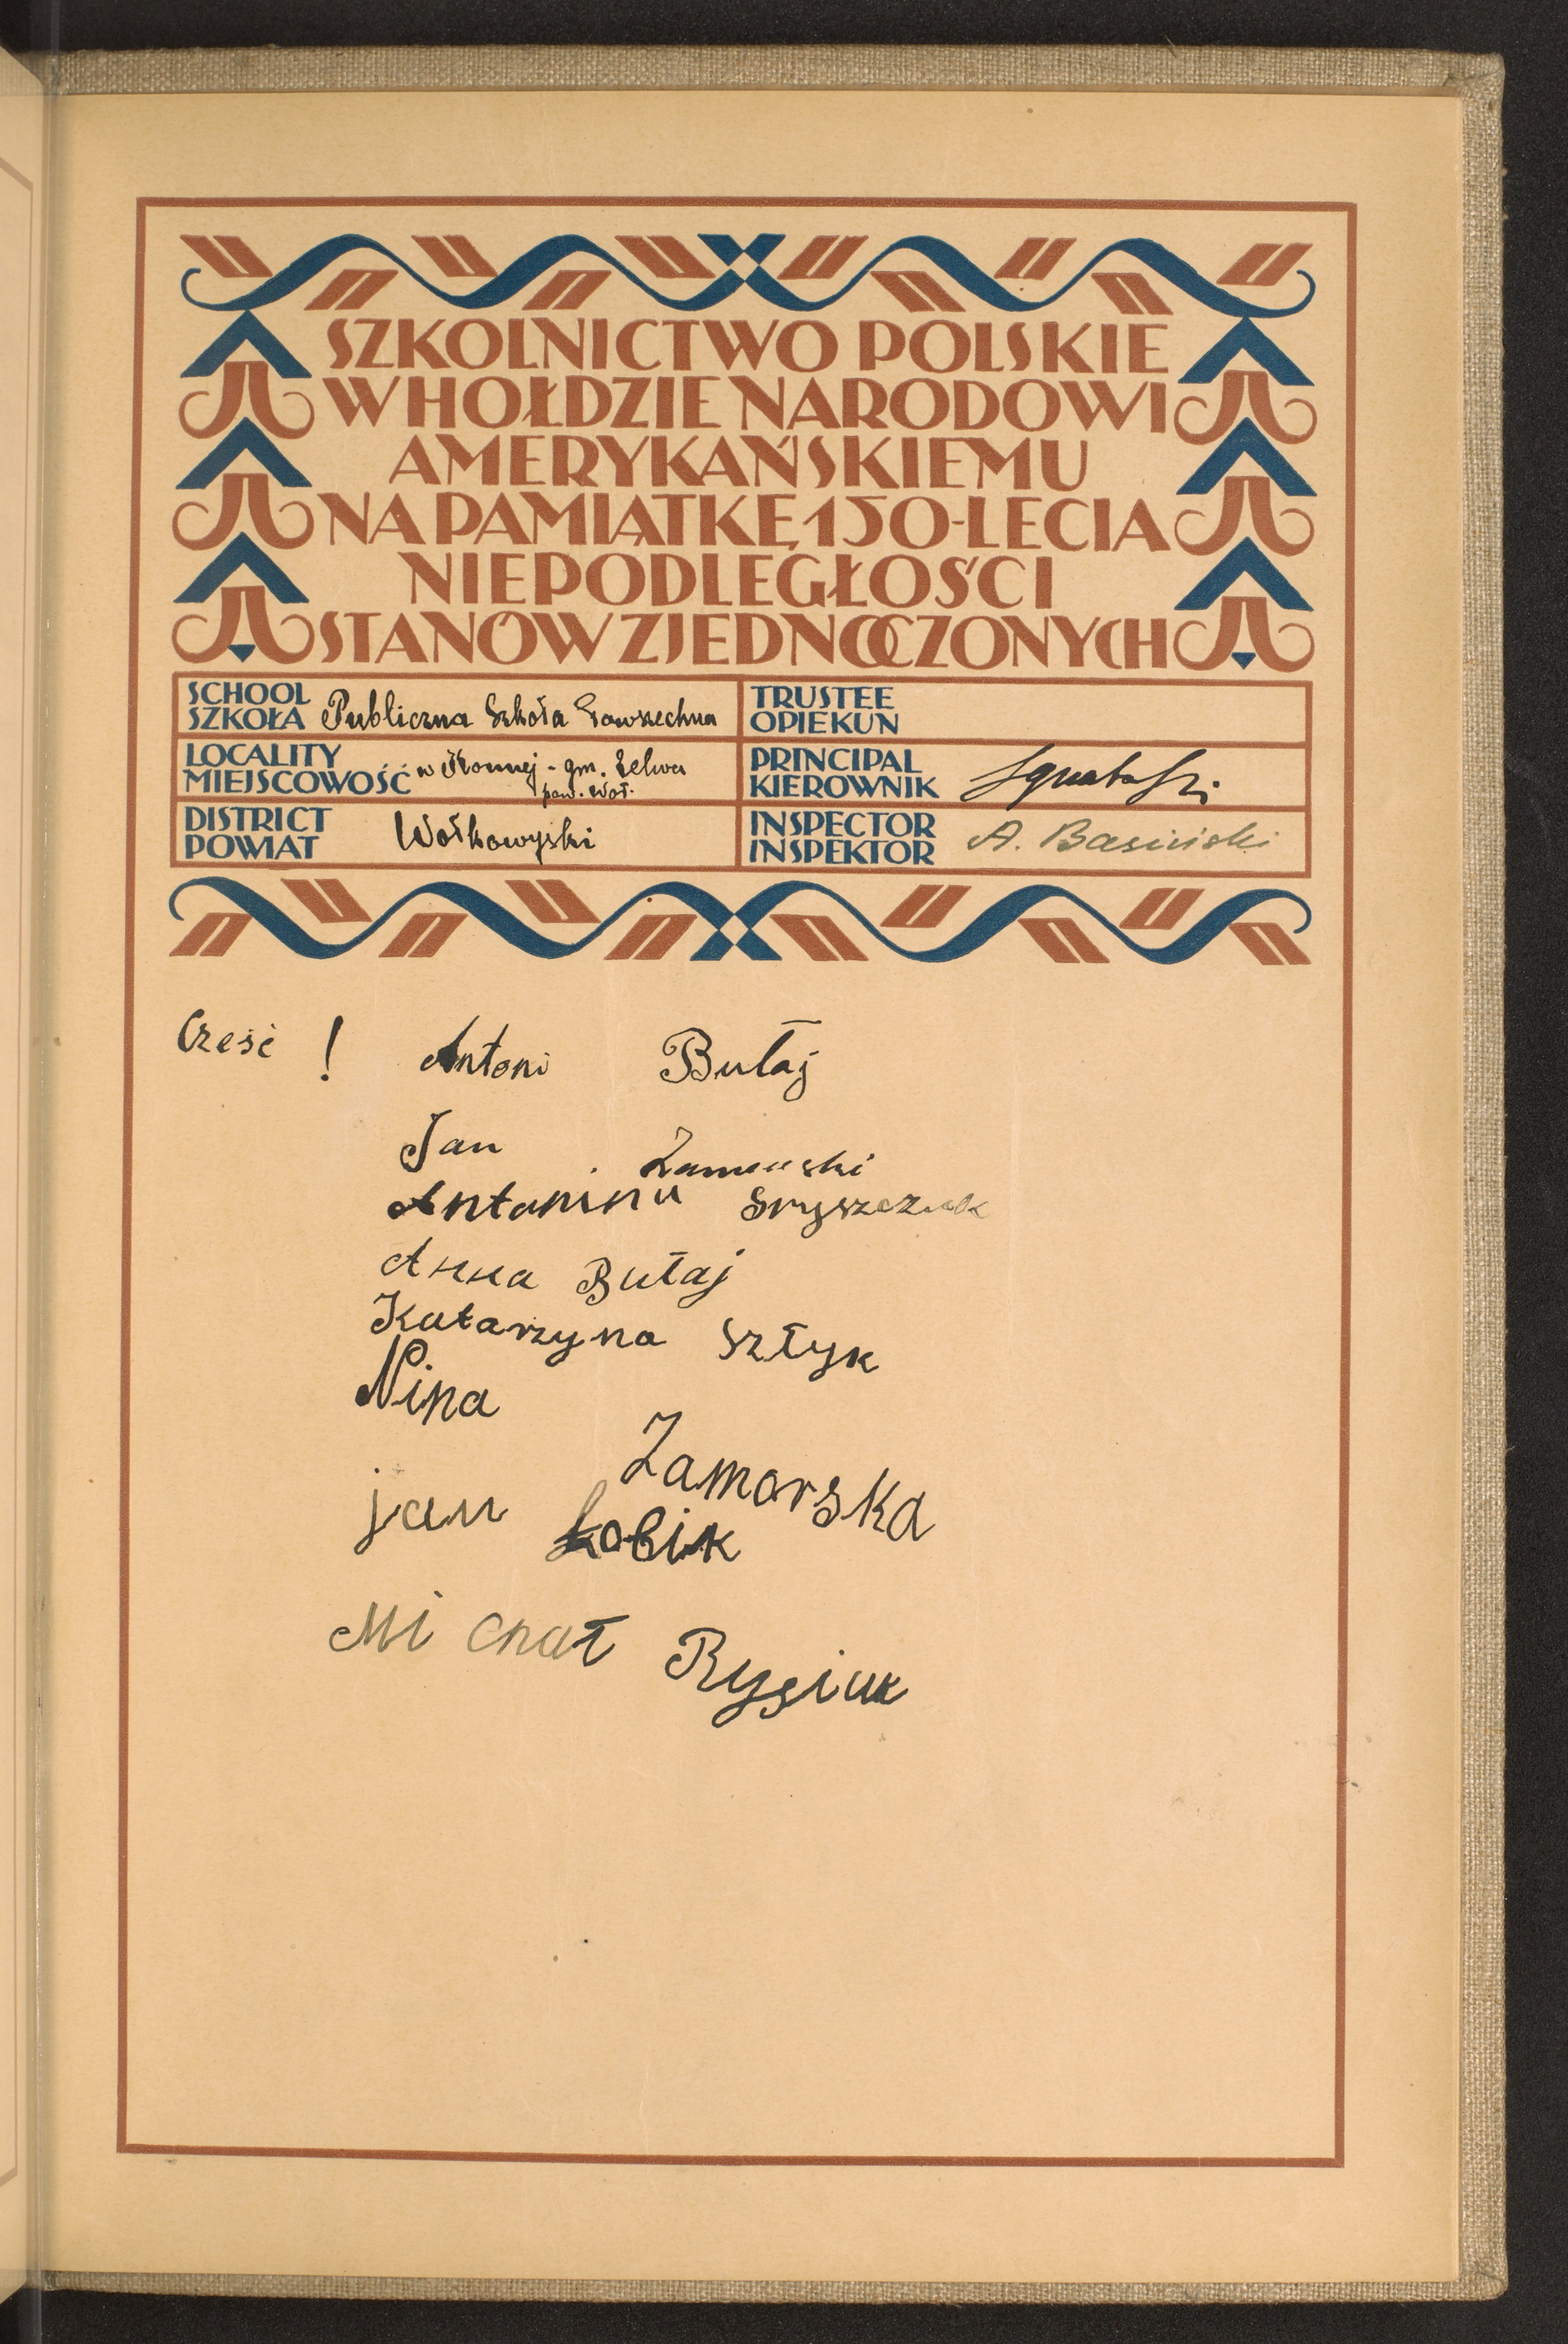 SZKOLNICTWO POLSKIE
W HOŁDZIE NARODOWI
AMERYKAŃSKIEMU
NA PAMIĄTKĘ 150-LECIA
NIEPODLEGŁOŚCI
STANÓW ZJEDNOCZONYCH
SCHOOL
SZKOŁA Publiczna Szkoła Powszechna
LOCALITY
MIEJSCOWOŚĆ w - gm. Zelwa
pow. Woł.
DISTRICT
POWIAT Wołkowyski
TRUSTEE
OPIEKUN
PRINCIPAL
KIEROWNIK
INSPECTOR
INSPEKTOR A. Basiński
Cześć ! Antoni Bułaj
Jan Zamorski
Antanina
Anna Bułaj
Katarzyna Sztyk
Nina Zamorska
jan Łobik
Michał Rysiuk